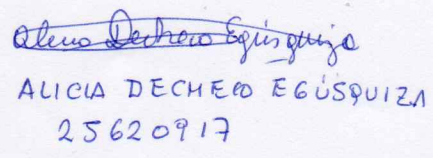 Alicia Decheco Egúsquiza
ALICIA DECHECO EGÚSQUIZA
25620917